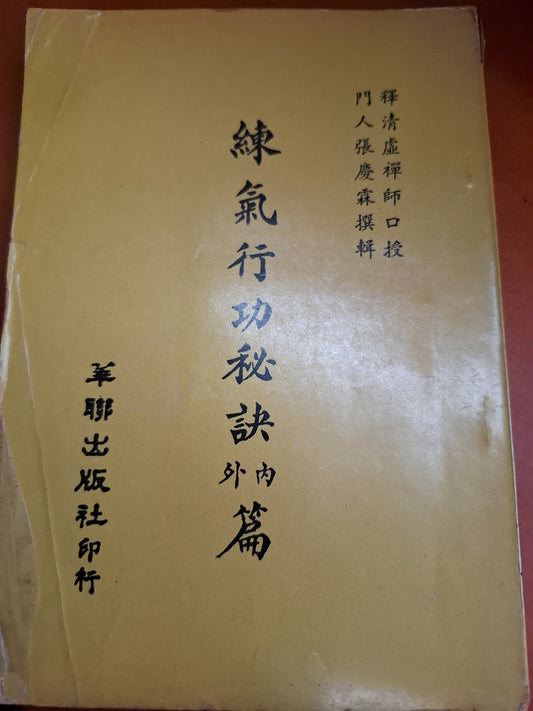 釋清虛禪師口授
門人張慶霖撰輯
練氣行功秘訣內外篇
華聯出版社印行